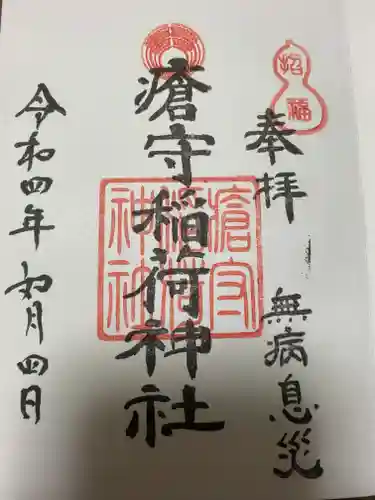 招福
奉拝
無病息災
瘡守稲荷神社
瘡守稲荷神社
令和四年 如月四日